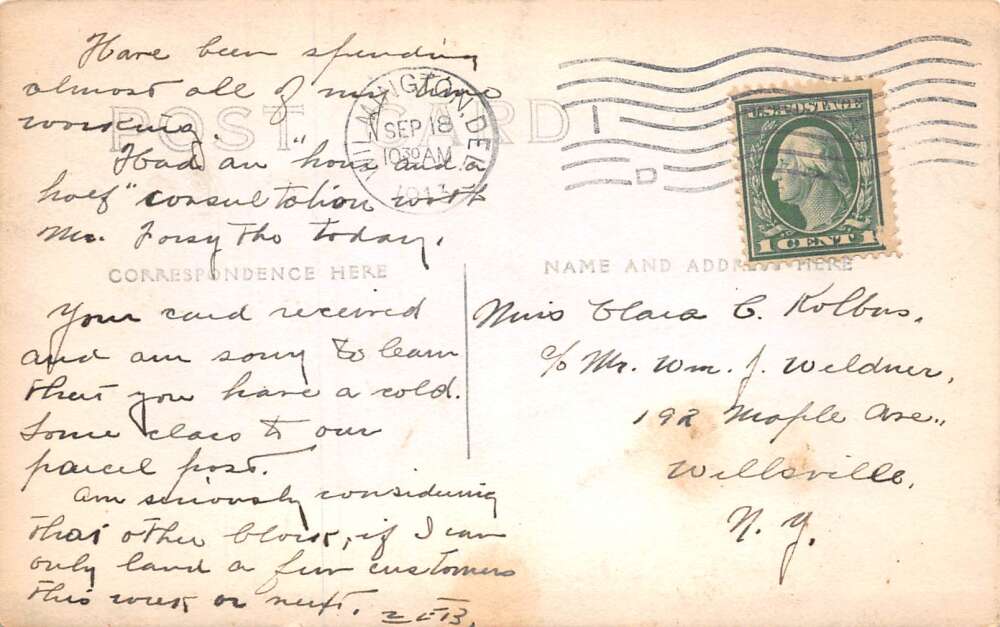 Have been spending
almost all of my time
working.
Had an "hour and a
half" consultation with
Mr. Forsythe today.
Your card received
and am sorry to learn
that you have a cold.
Some class to our
parcel post.
Am seriously considering
that other block, if I can
only land a few customers
this week or next.
POST CARD
CORRESPONDENCE HERE
WILMINGTON, DEL.
SEP 18
10 30 AM
1913
D
U.S. POSTAGE
1 CENT 1
NAME AND ADDRESS HERE
Miss Clara C. Kolbus.
c/o Mr. Wm. J. Weldner,
192 Maple Ave.,
Wellsville,
N. Y.